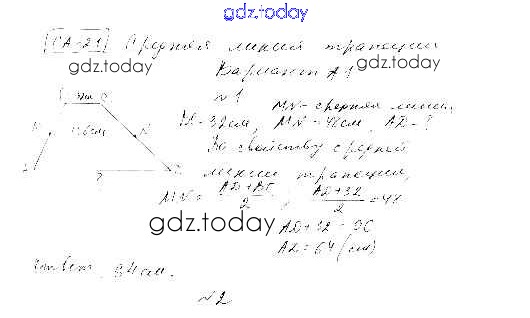 gdz.today
СА-21 Средняя линия трапеции
gdz.today
Вариант А1
№1
MN - средняя линия,
32см, MN = 48см, AD - ?
По свойству средней
линии трапеции,
MN = (AD + BC)/2 ; (AD + 32)/2 = 48
gdz.today
AD + 32 = 96
AD = 64 (см)
Ответ: 64см.
№2